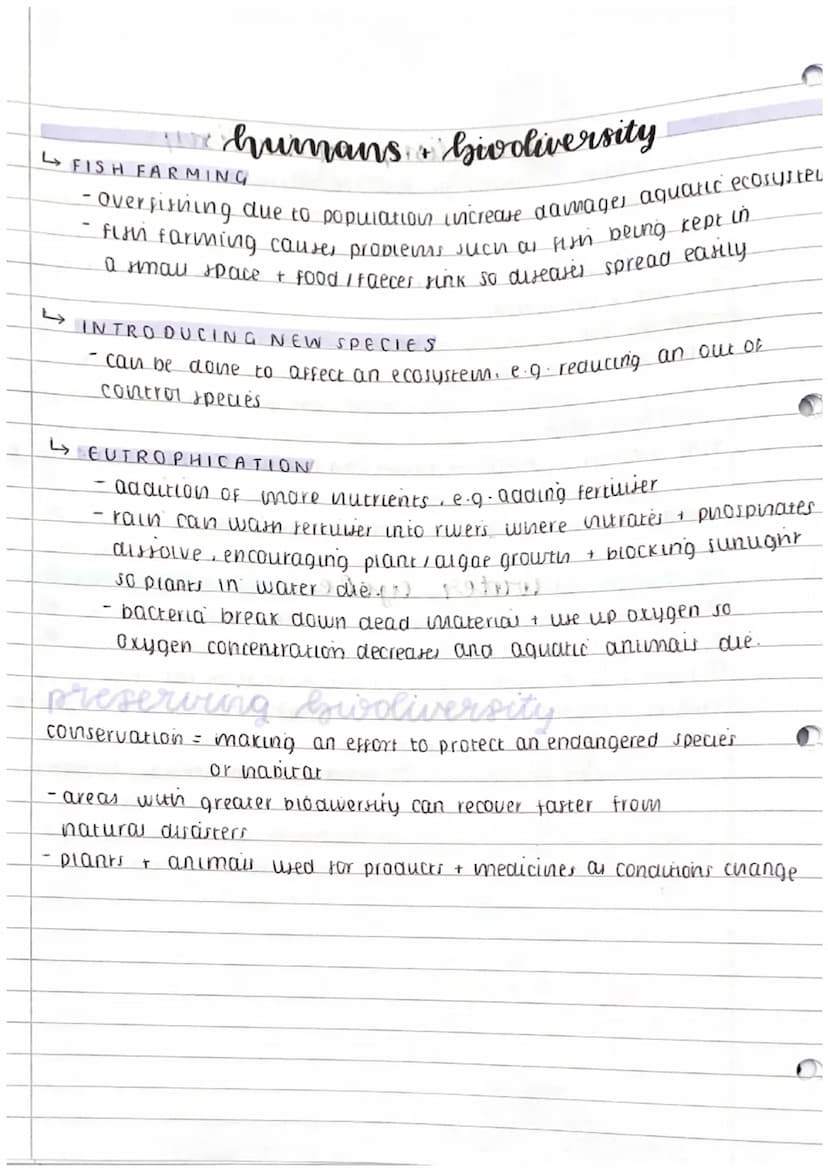 humans + biodiversity
↳ FISH FARMING
- overfishing due to population increase damages aquatic ecosystem
- fish farming causes problems such as fish being kept in
a small space + food / faeces sink so diseases spread easily
↳ INTRODUCING NEW SPECIES
- can be done to affect an ecosystem, e.g. reducing an out of
control species
↳ EUTROPHICATION
- addition of more nutrients, e.g. adding fertiliser
- rain can wash fertiliser into rivers where nitrates + phosphates
dissolve, encouraging plant/algae growth + blocking sunlight
so plants in water die.
- bacteria break down dead material + use up oxygen so
oxygen concentration decreases and aquatic animals die.
preserving biodiversity
conservation = making an effort to protect an endangered species
or habitat
- areas with greater biodiversity can recover faster from
natural disasters
- plants + animals used for products + medicines as conditions change